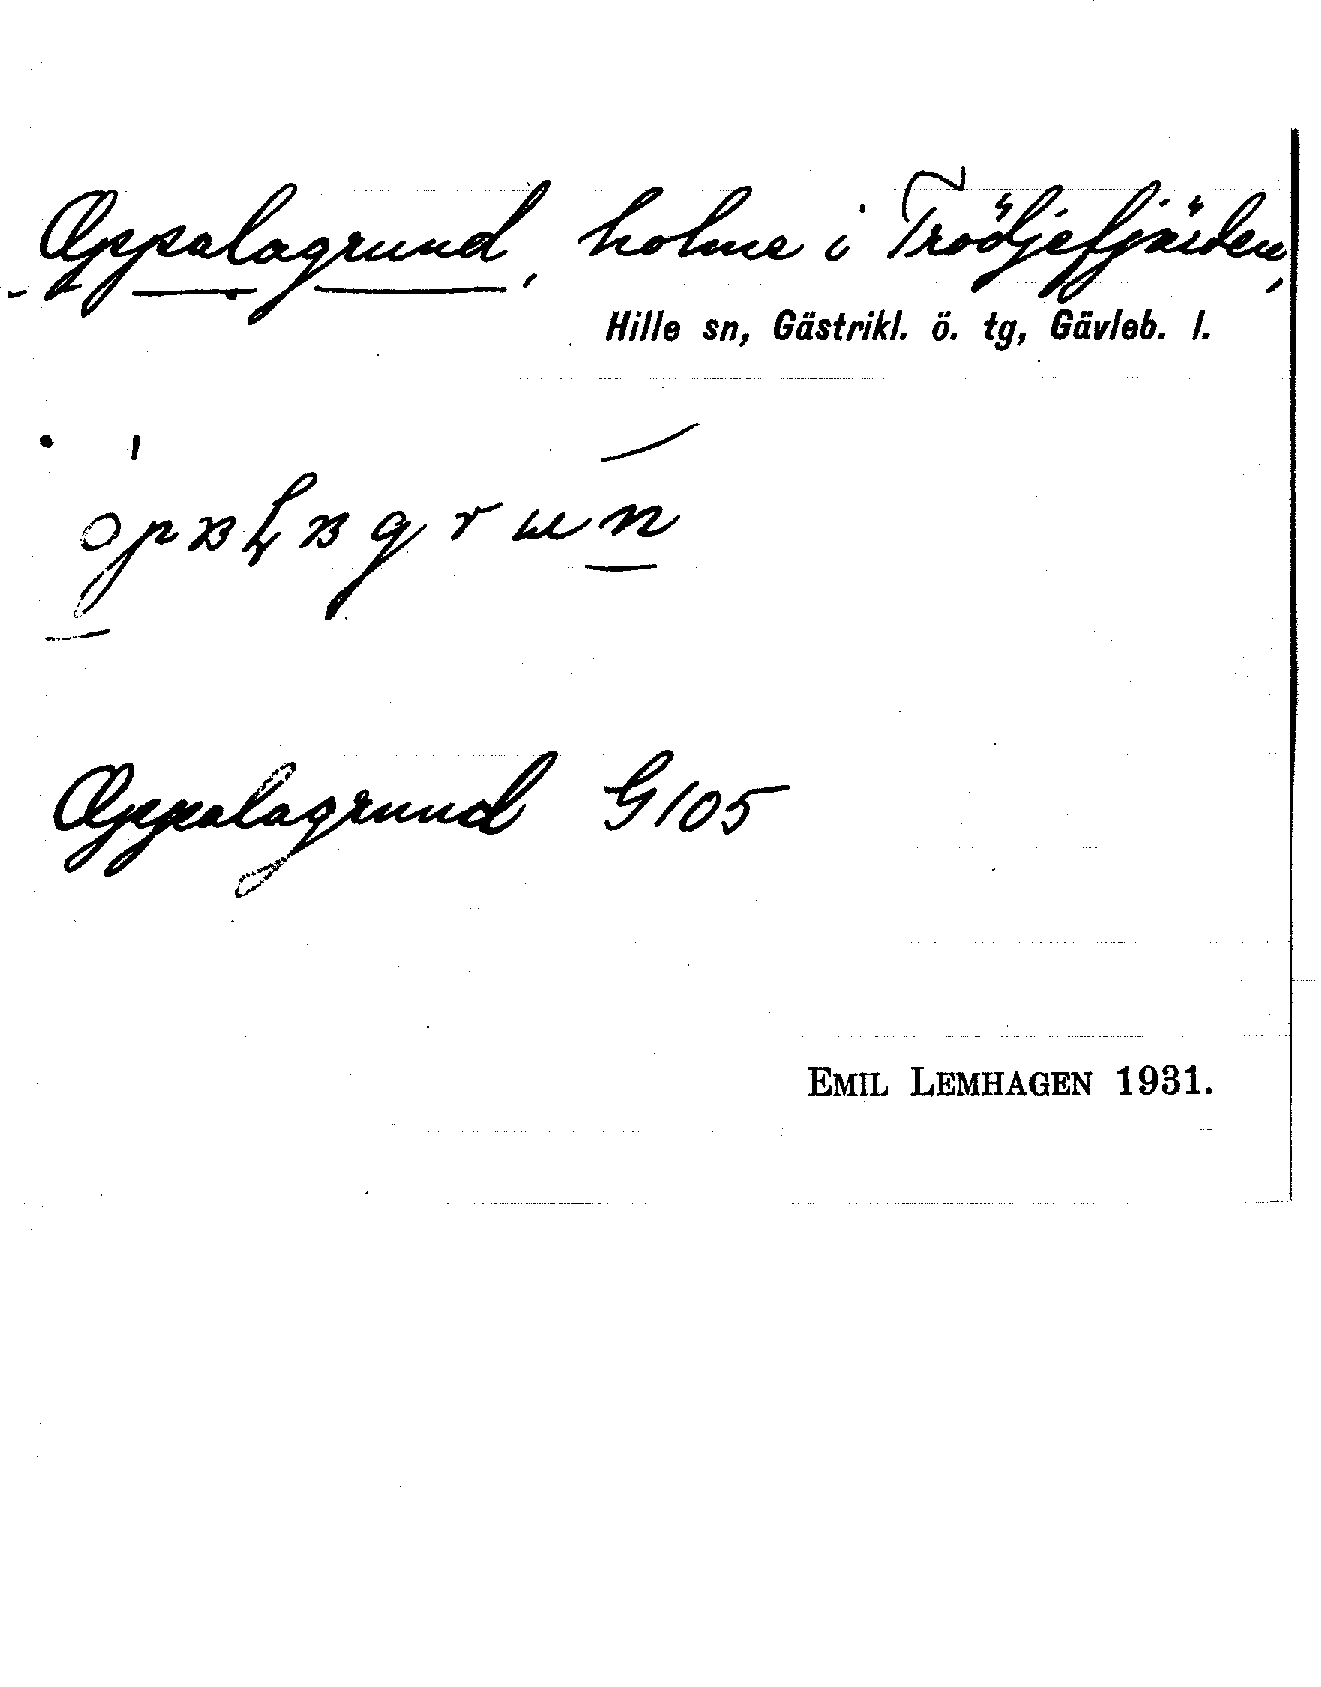 Oppalagrund, holme i Trödjefjärden,
Hille sn, Gästrikl. ö. tg, Gävleb. l.
Oppalagrund G 105
EMIL LEMHAGEN 1931.